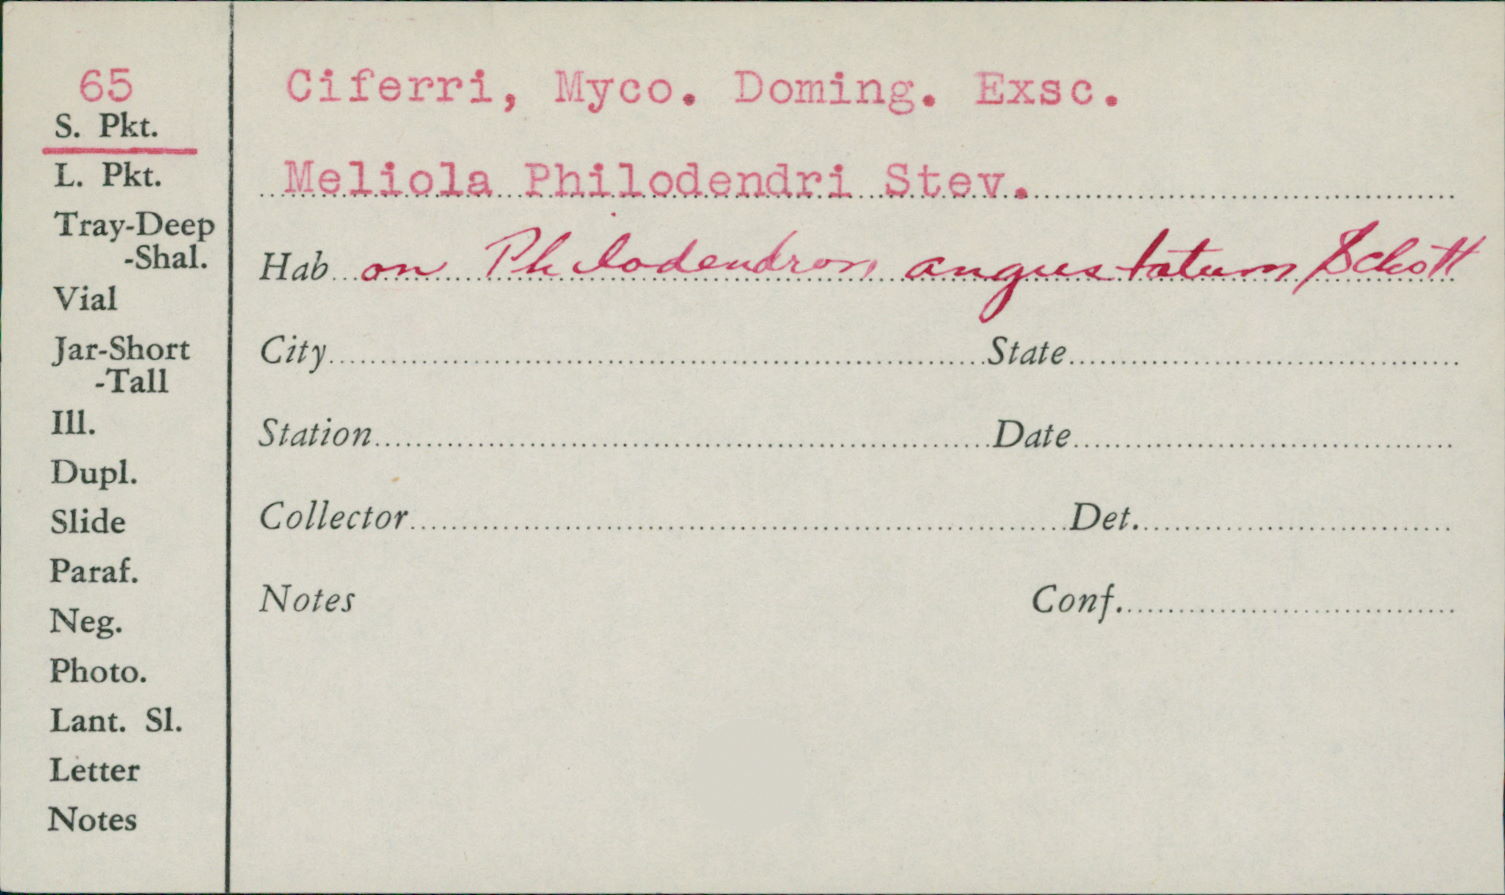 65
S. Pkt.
L. Pkt.
Tray-Deep
-Shal.
Vial
Jar-Short
-Tall
Ill.
Dupl.
Slide
Paraf.
Neg.
Photo.
Lant. Sl.
Letter
Notes
Ciferri, Myco. Doming. Exsc.
Meliola Philodendri Stev.
Hab on Philodendron angustatum Schott
City State
Station Date
Collector Det.
Notes Conf.